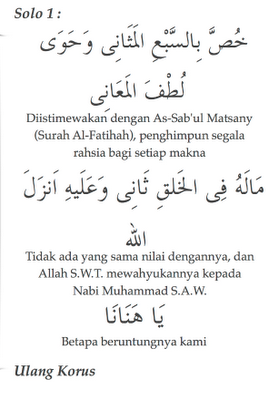 Solo 1 :
خُصَّ بِالسَّبْعِ المَثَانِى وَحَوَى
لُطْفَ المَعَانِى
Diistimewakan dengan As-Sab'ul Matsany
(Surah Al-Fatihah), penghimpun segala
rahsia bagi setiap makna
مَالَهُ فِى الخَلقِ ثَانِى وَعَلَيهِ اَنزَلَ
الله
Tidak ada yang sama nilai dengannya, dan
Allah S.W.T. mewahyukannya kepada
Nabi Muhammad S.A.W.
يَا هَنَانَا
Betapa beruntungnya kami
Ulang Korus